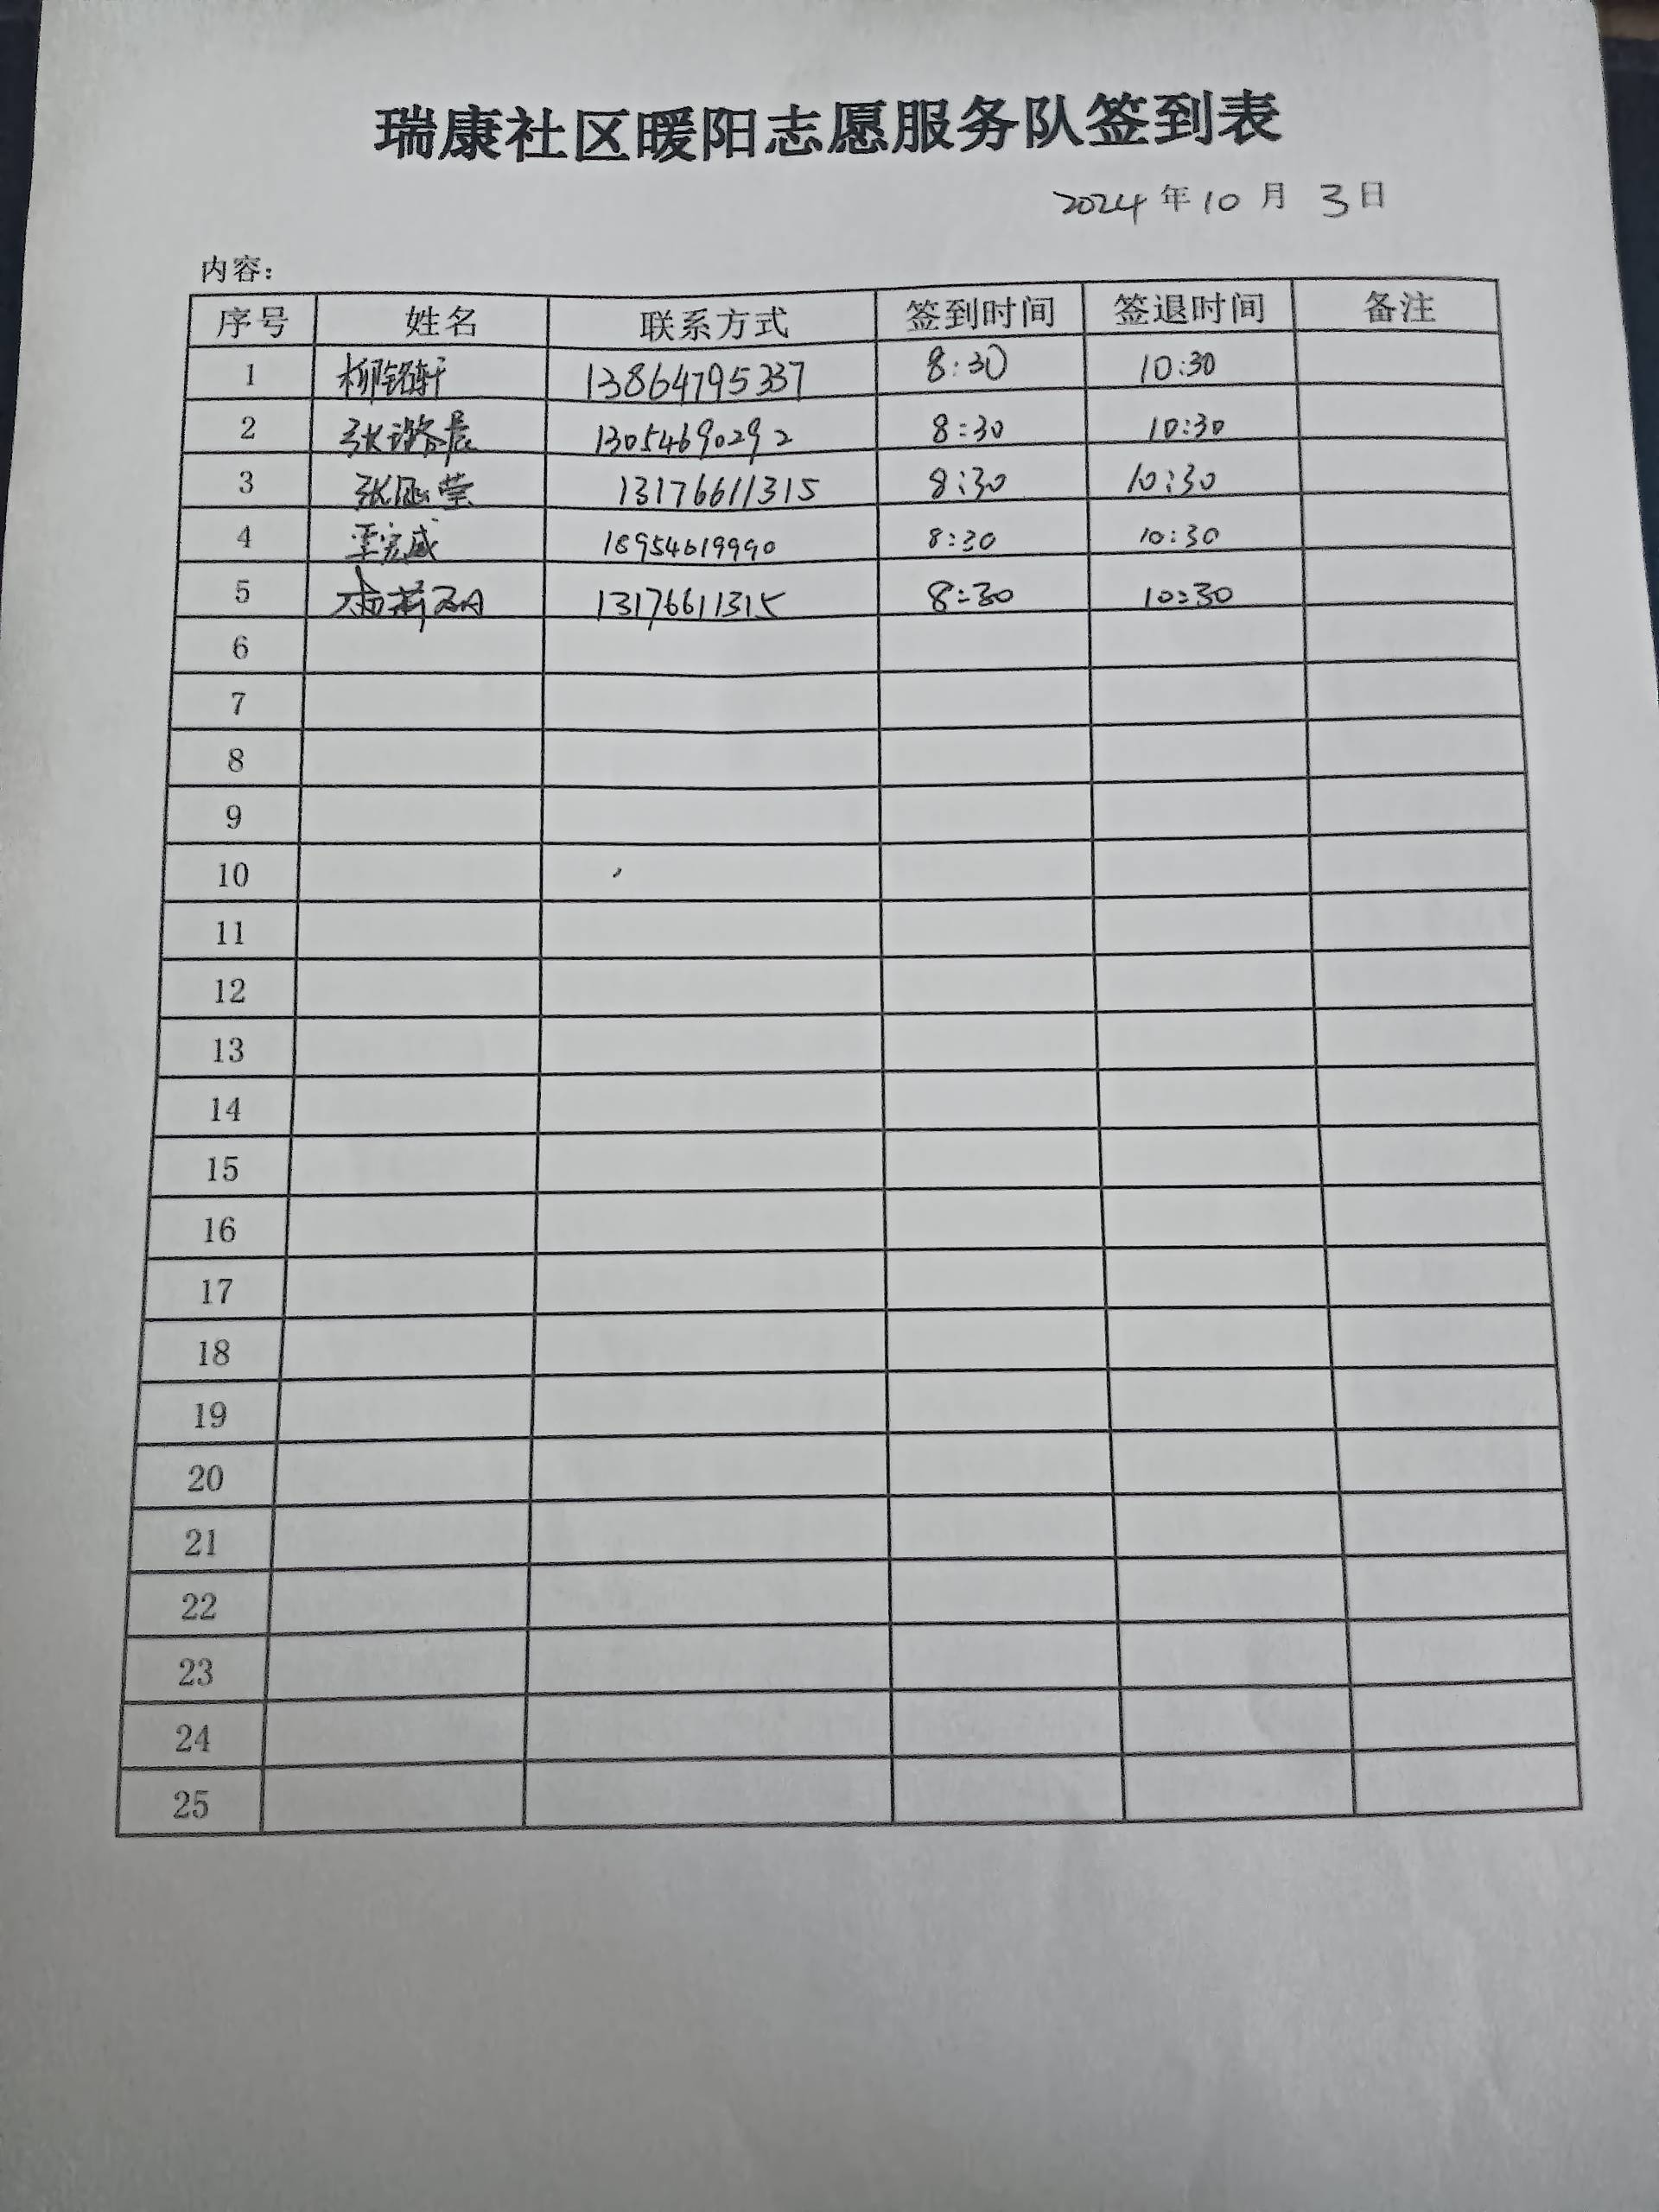 瑞康社区暖阳志愿服务队签到表
2024年10月3日
内容：
序号 姓名 联系方式 签到时间 签退时间 备注
1 柳铭轩 13864795337 8:30 10:30
2 张潞晨 13054690292 8:30 10:30
3 张 莹 13176611315 8:30 10:30
4 18954619990 8:30 10:30
5 13176611315 8:30 10:30
6
7
8
9
10
11
12
13
14
15
16
17
18
19
20
21
22
23
24
25